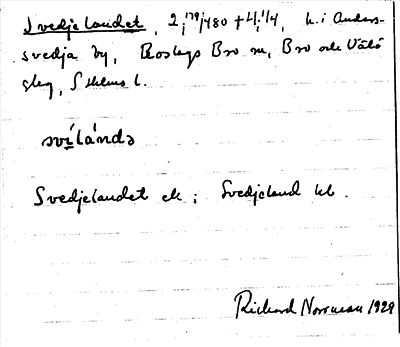 Svedjelandet, 2,179/480 + 4,1/4, h. i Anders-
svedja by, Roslags Bro sn, Bro och Vätö
slg, Sthlms l.
svìlándə
Svedjelandet ek; Svedjeland kl.
Richard Norrman 1929